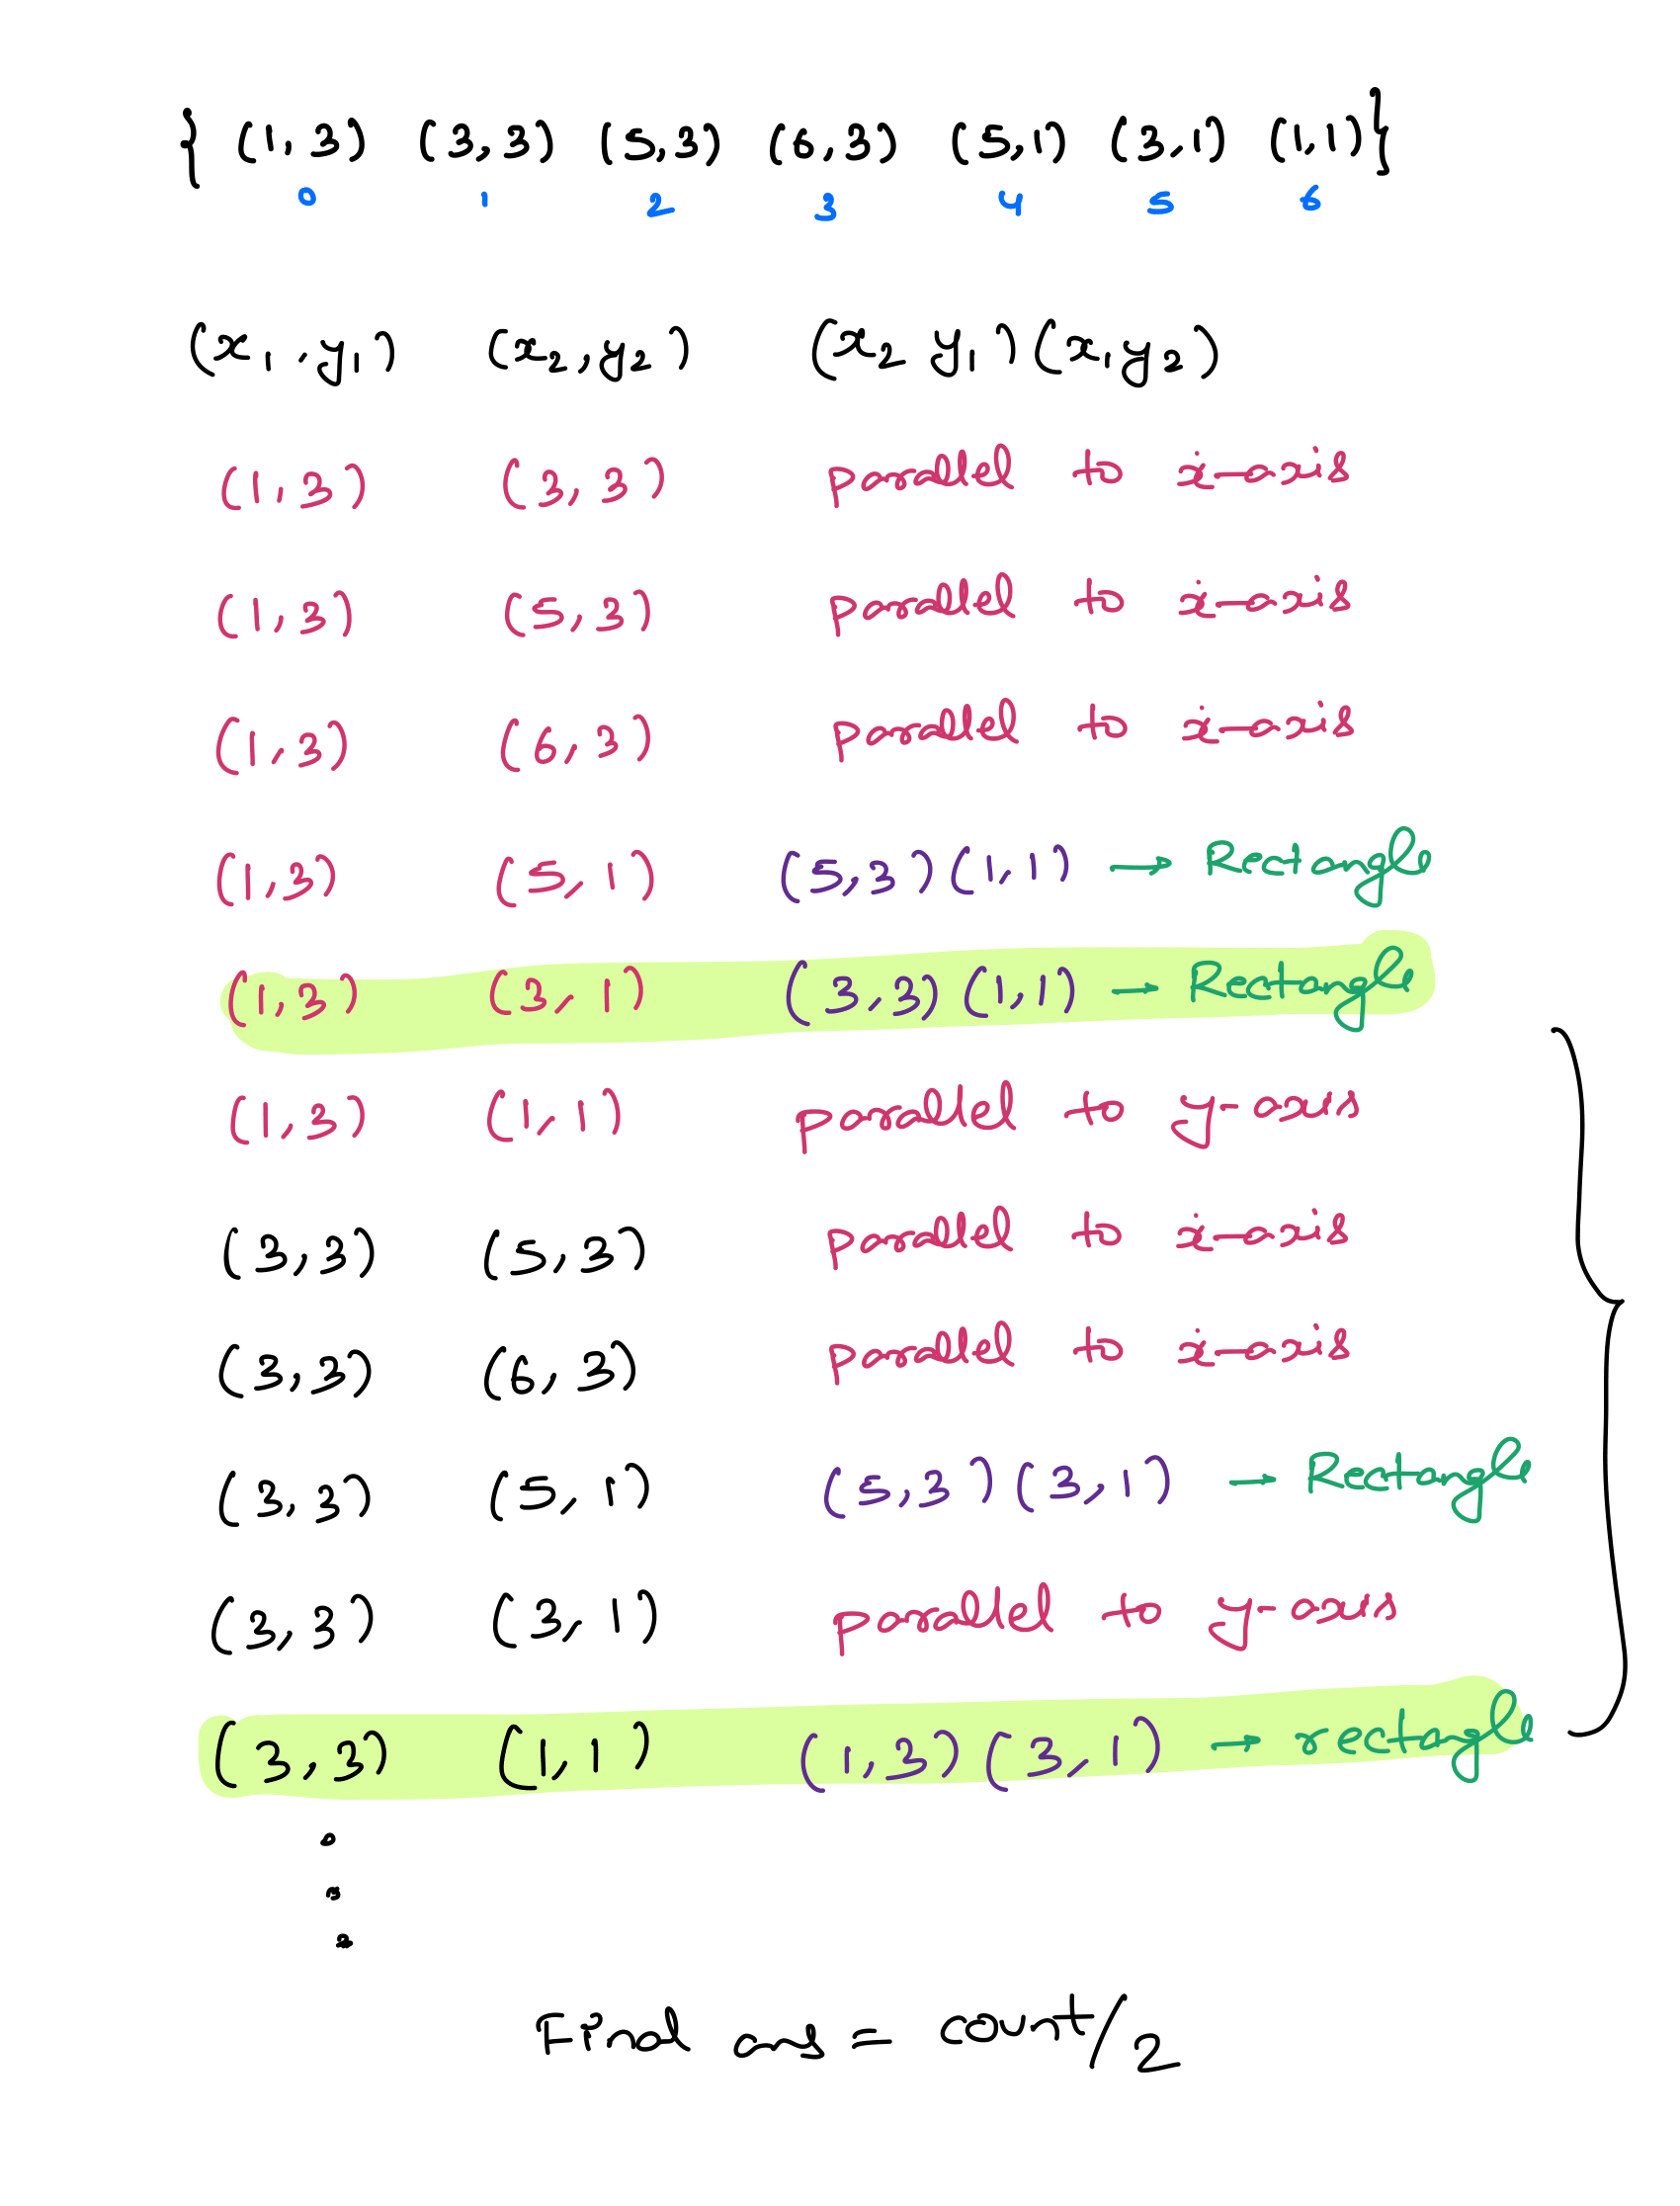 { (1,3) (3,3) (5,3) (6,3) (5,1) (3,1) (1,1) }
0 1 2 3 4 5 6
(x1,y1) (x2,y2) (x2 y1) (x1y2)
(1,3) (3,3) parallel to x-axis
(1,3) (5,3) parallel to x-axis
(1,3) (6,3) parallel to x-axis
(1,3) (5,1) (5,3) (1,1) → Rectangle
(1,3) (3,1) (3,3) (1,1) → Rectangle
(1,3) (1,1) parallel to y-axis
(3,3) (5,3) parallel to x-axis
(3,3) (6,3) parallel to x-axis
(3,3) (5,1) (5,3) (3,1) → Rectangle
(3,3) (3,1) parallel to y-axis
(3,3) (1,1) (1,3) (3,1) → rectangle
Final ans = count/2